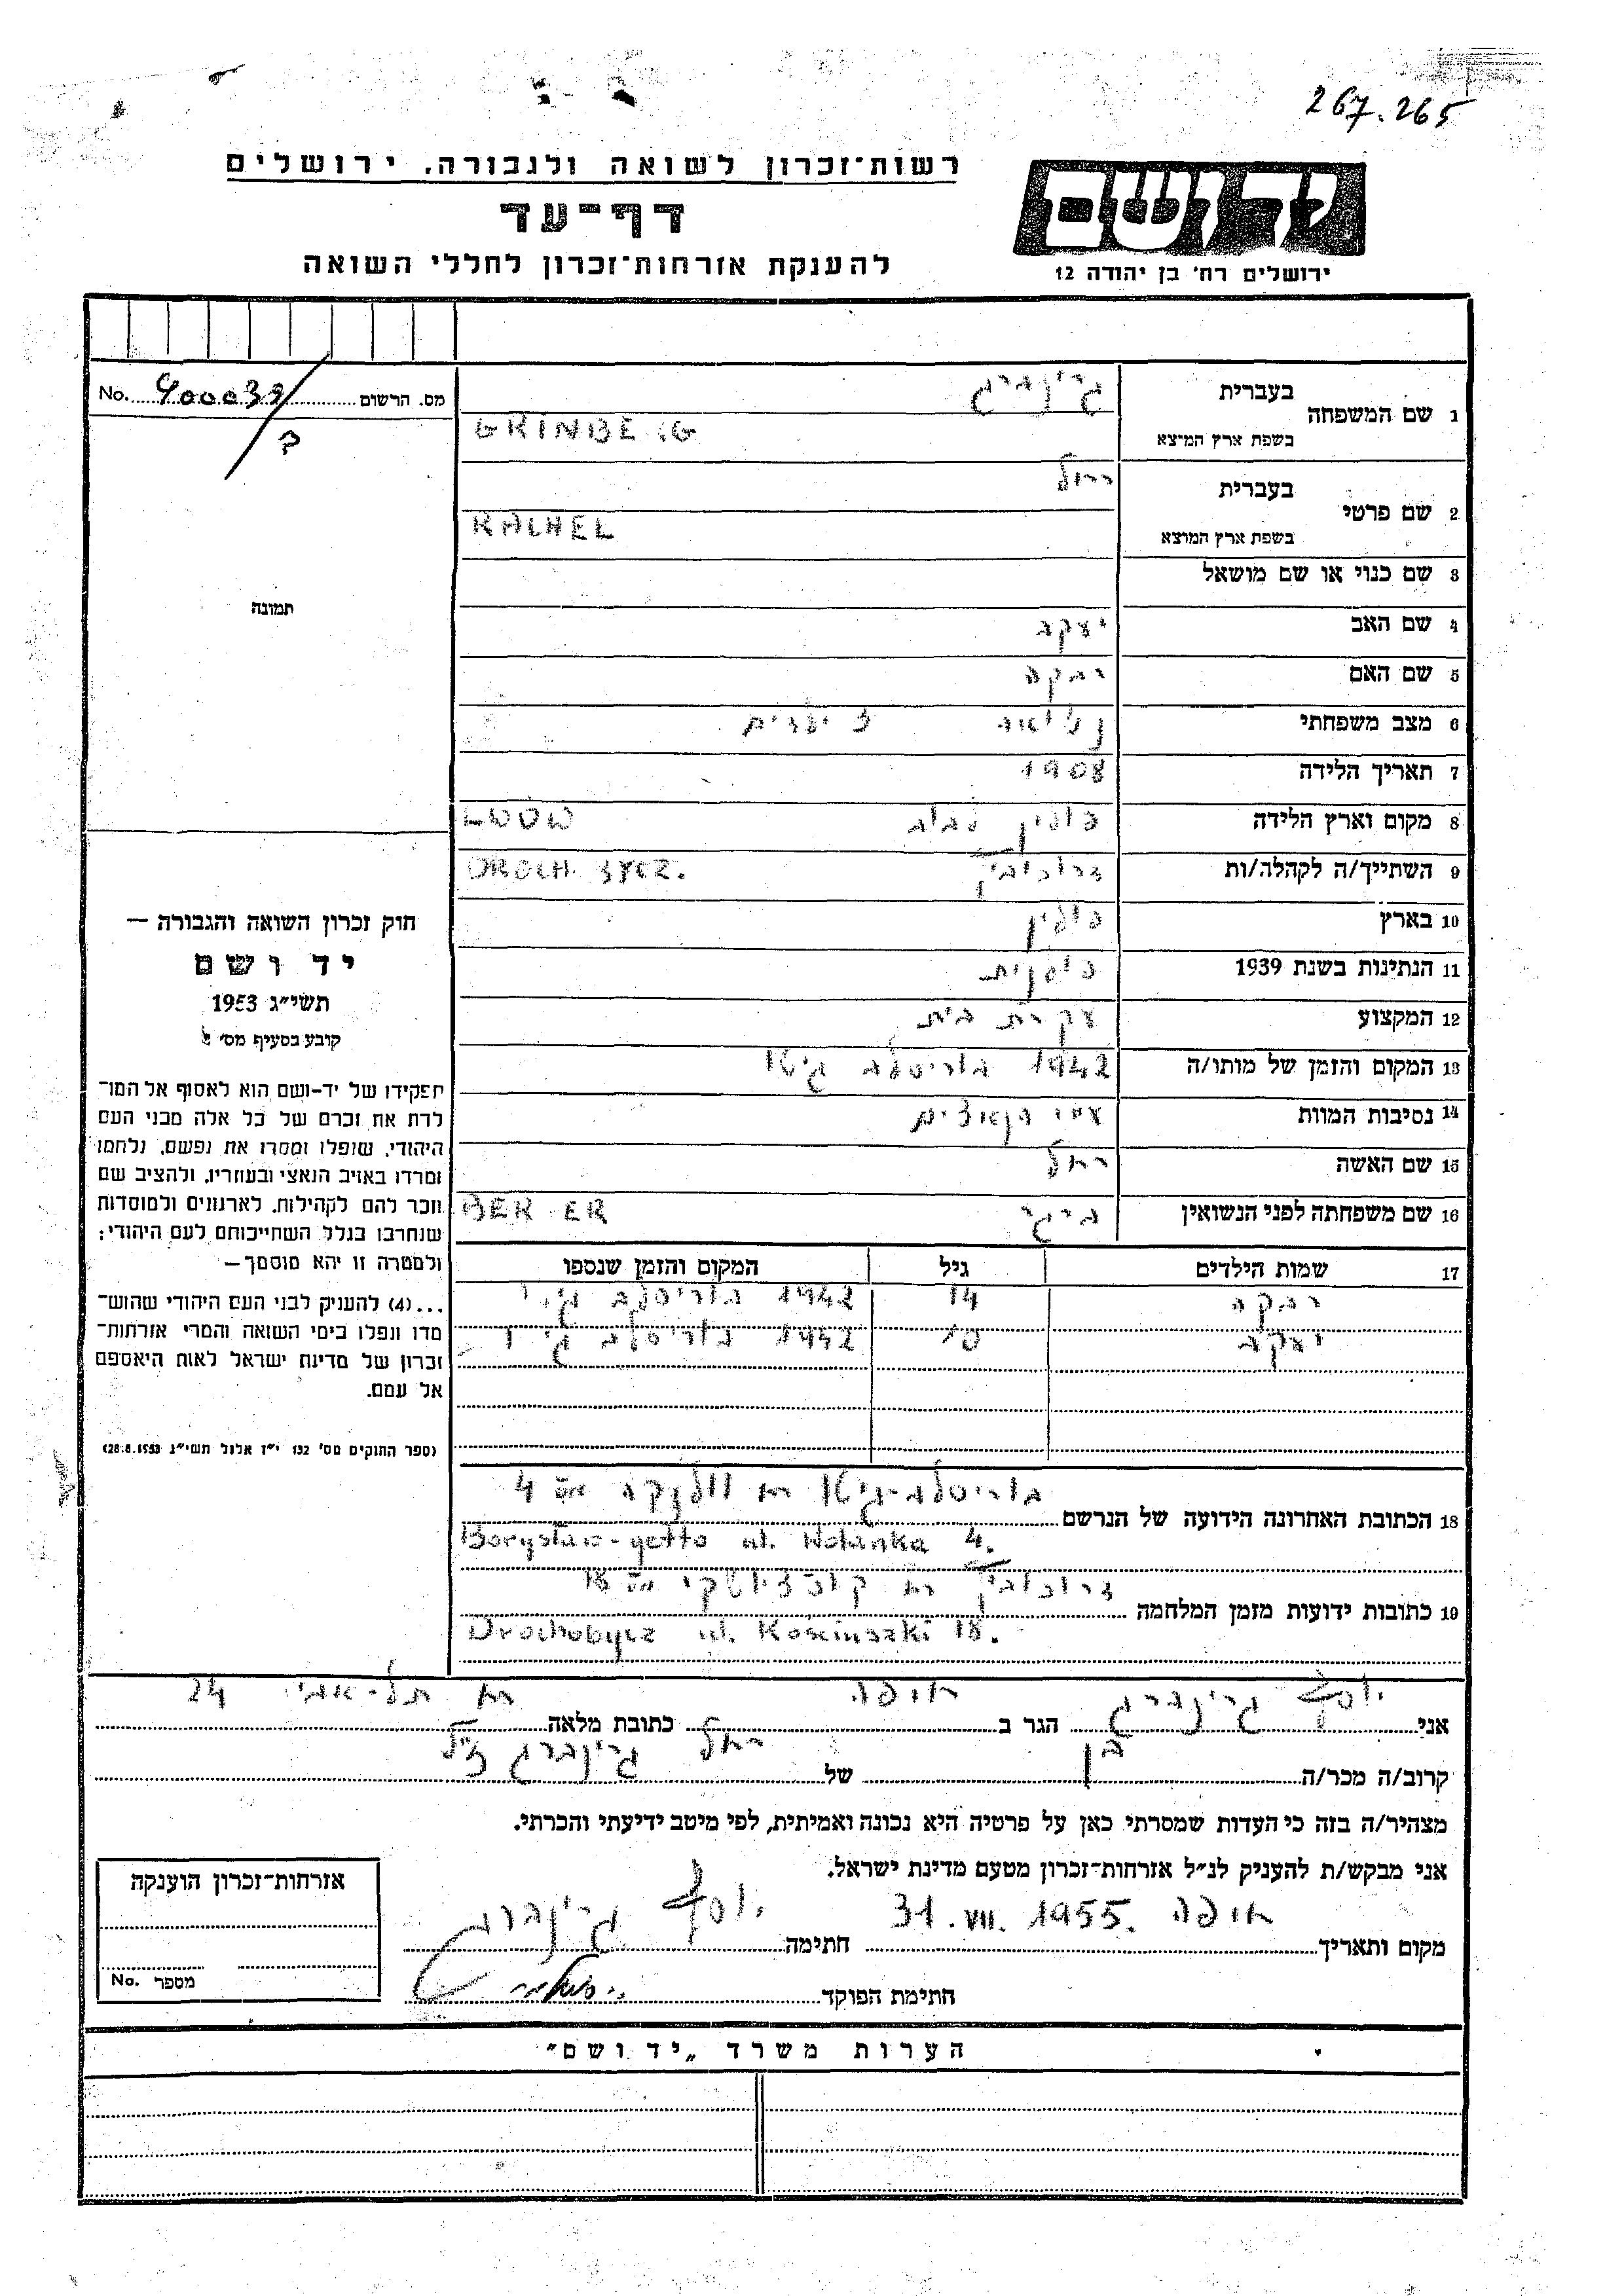 267.265
רשות־זכרון לשואה ולגבורה, ירושלים
יד ושם
דף־עד
להענקת אזרחות־זכרון לחללי השואה
ירושלים רח׳ בן יהודה 12
מס. הרשום 400039 No.
תמונה
1 שם המשפחה בעברית גרינברג
בשפת ארץ המוצא GRINBE
2 שם פרטי בעברית רחל
בשפת ארץ המוצא RACHEL
3 שם כנוי או שם מושאל
4 שם האב יעקב
5 שם האם רבקה
6 מצב משפחתי נשואה ילדים
7 תאריך הלידה 1908
8 מקום וארץ הלידה פולין לבוב LWÓW
9 השתייך/ה לקהלה/ות
10 בארץ פולין
11 הנתינות בשנת 1939 פולנית
12 המקצוע עקרת בית
13 המקום והזמן של מותו/ה 1942 בוריסלב גיטו
14 נסיבות המוות הנאצים
15 שם האשה רחל
16 שם משפחתה לפני הנשואין
17 שמות הילדים גיל המקום והזמן שנספו
רבקה 14 1942 בוריסלב
יעקב 10 1942 בוריסלב
18 הכתובת האחרונה הידועה של הנרשם בוריסלב-גיטו רח וולנקה מס 4
Borysław-getto ul. Wolanka 4.
19 כתובות ידועות מזמן המלחמה רח מס 18
Drochobycz ul. Kościuszki 18.
חוק זכרון השואה והגבורה —
יד ושם
תשי״ג 1953
קובע בסעיף מס׳
תפקידו של יד-ושם הוא לאסוף אל המו־
לדת את זכרם של כל אלה מבני העם
היהודי, שנפלו ומסרו את נפשם, נלחמו
ומרדו באויב הנאצי ובעוזריו, ולהציב שם
וזכר להם לקהילות, לארגונים ולמוסדות
שנחרבו בגלל השתייכותם לעם היהודי;
ולמטרה זו יהא מוסמך —
...(4) להעניק לבני העם היהודי שהוש־
מדו ונפלו בימי השואה והמרי אזרחות־
זכרון של מדינת ישראל לאות היאספם
אל עמם.
(ספר החוקים מס׳ 132 י״ז אלול תשי״ג 28.8.1953)
אני יוסף גרינברג הגר ב חיפה כתובת מלאה רח תל-אביב 24
קרוב/ה מכר/ה בן של רחל גרינברג ז״ל
מצהיר/ה בזה כי העדות שמסרתי כאן על פרטיה היא נכונה ואמיתית, לפי מיטב ידיעתי והכרתי.
אני מבקש/ת להעניק לנ״ל אזרחות־זכרון מטעם מדינת ישראל.
מקום ותאריך חיפה 31.VII.1955. חתימה יוסף גרינברג
חתימת הפוקד
אזרחות־זכרון הוענקה
מספר No.
הערות משרד „יד ושם״